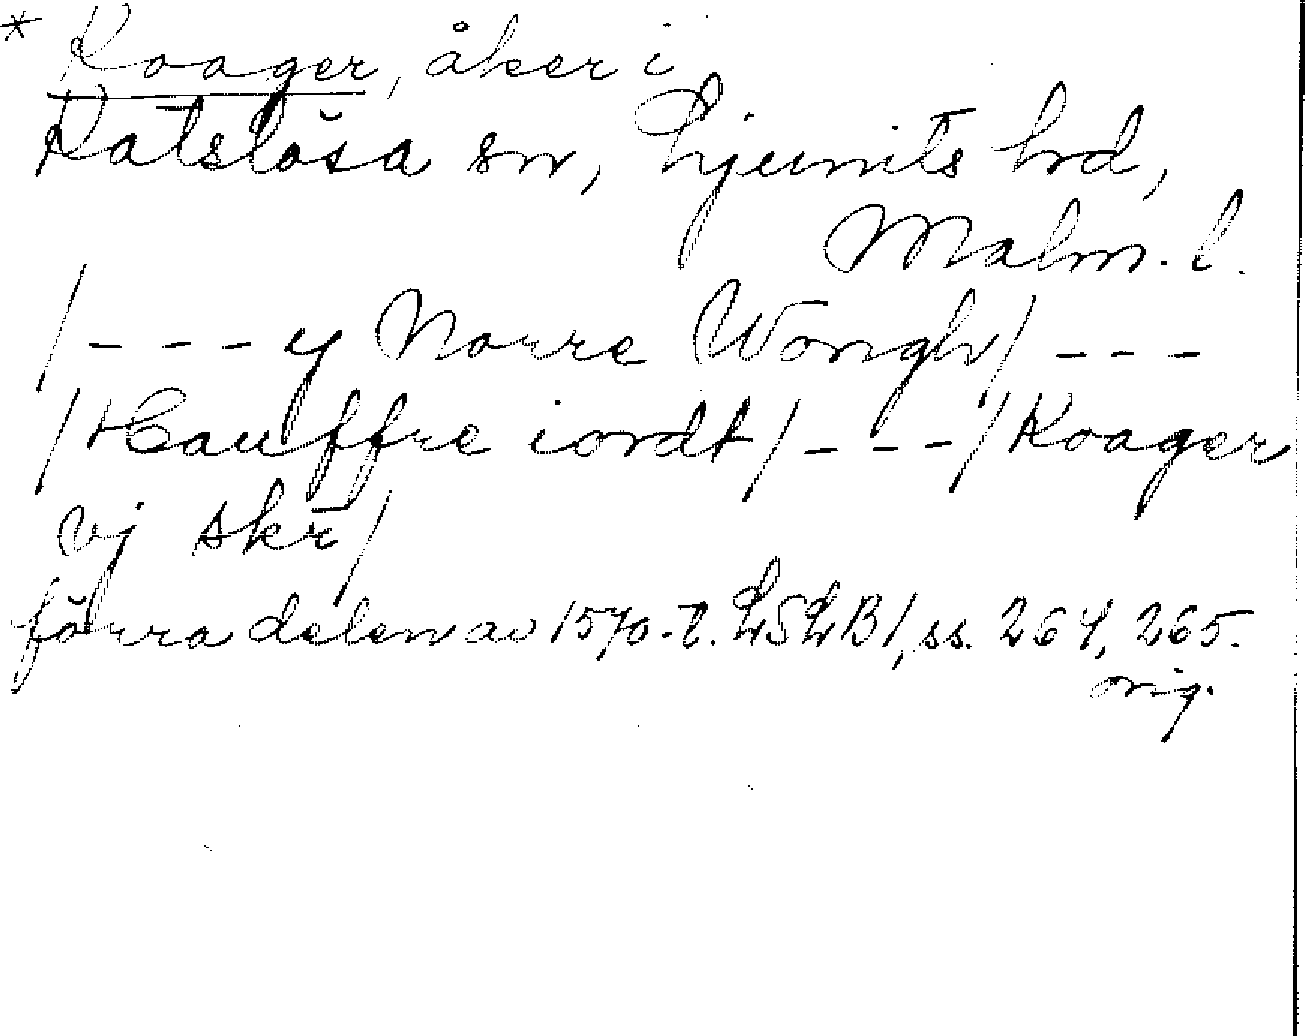 * Koager, åker i
Katslösa sn, Ljunits hd,
Malm. l.
/- - - y Norre Wongh/ - - -
/Hauffre iordt/ - - -/Koager
vj skr̄/
förra delen av 1570-t. LSLB1, ss. 264, 265.
orig.